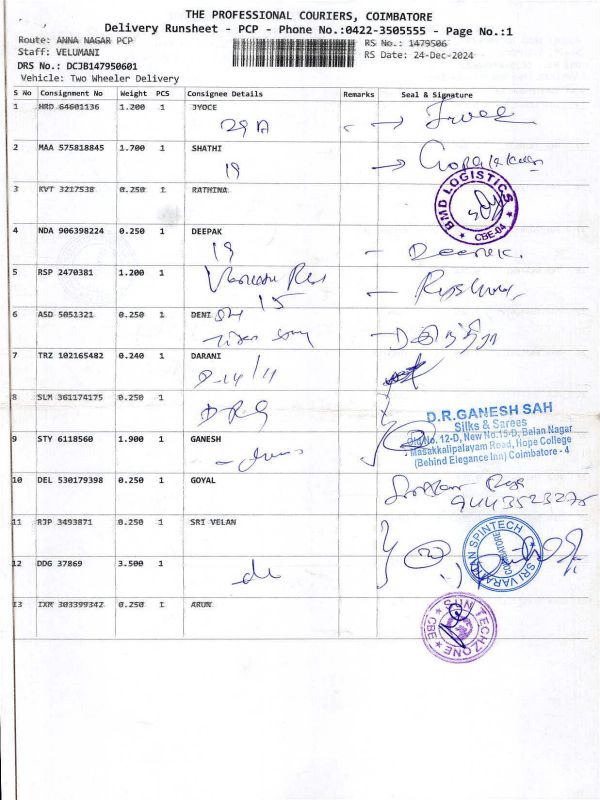 THE PROFESSIONAL COURIERS, COIMBATORE
Delivery Runsheet - PCP - Phone No.:0422-3505555 - Page No.:1
Route: ANNA NAGAR PCP RS No.: 1479506
Staff: VELUMANI RS Date: 24-Dec-2024
DRS No.: DCJB147950601
Vehicle: Two Wheeler Delivery
S No Consignment No Weight PCS Consignee Details Remarks Seal & Signature
1 HRD 64601136 1.200 1 JYOCE
29 A
2 MAA 575818845 1.700 1 SHATHI
19
3 KVT 3217538 0.250 1 RATHINA
BMD LOGISTICS
* CBE-04 *
4 NDA 906398224 0.250 1 DEEPAK
19
5 RSP 2470381 1.200 1
15
6 ASD 5051321 0.250 1 DENI
7 TRZ 102165482 0.240 1 DARANI
9-14/11
8 SLM 361174175 0.250 1
DRG
D.R.GANESH SAH
Silks & Sarees
Old No. 12-D, New No.15-D, Balan Nagar
Masakkalipalayam Road, Hope College
(Behind Elegance Inn) Coimbatore - 4
9 STY 6118560 1.900 1 GANESH
10 DEL 530179398 0.250 1 GOYAL
9443523275
11 RJP 3493871 0.250 1 SRI VELAN
SRI VARATHAN SPINTECH
COIMBATORE
12 DDG 37869 3.500 1
13 IXM 303399342 0.250 1 ARUN
SUN TECHZONE
* CBE *